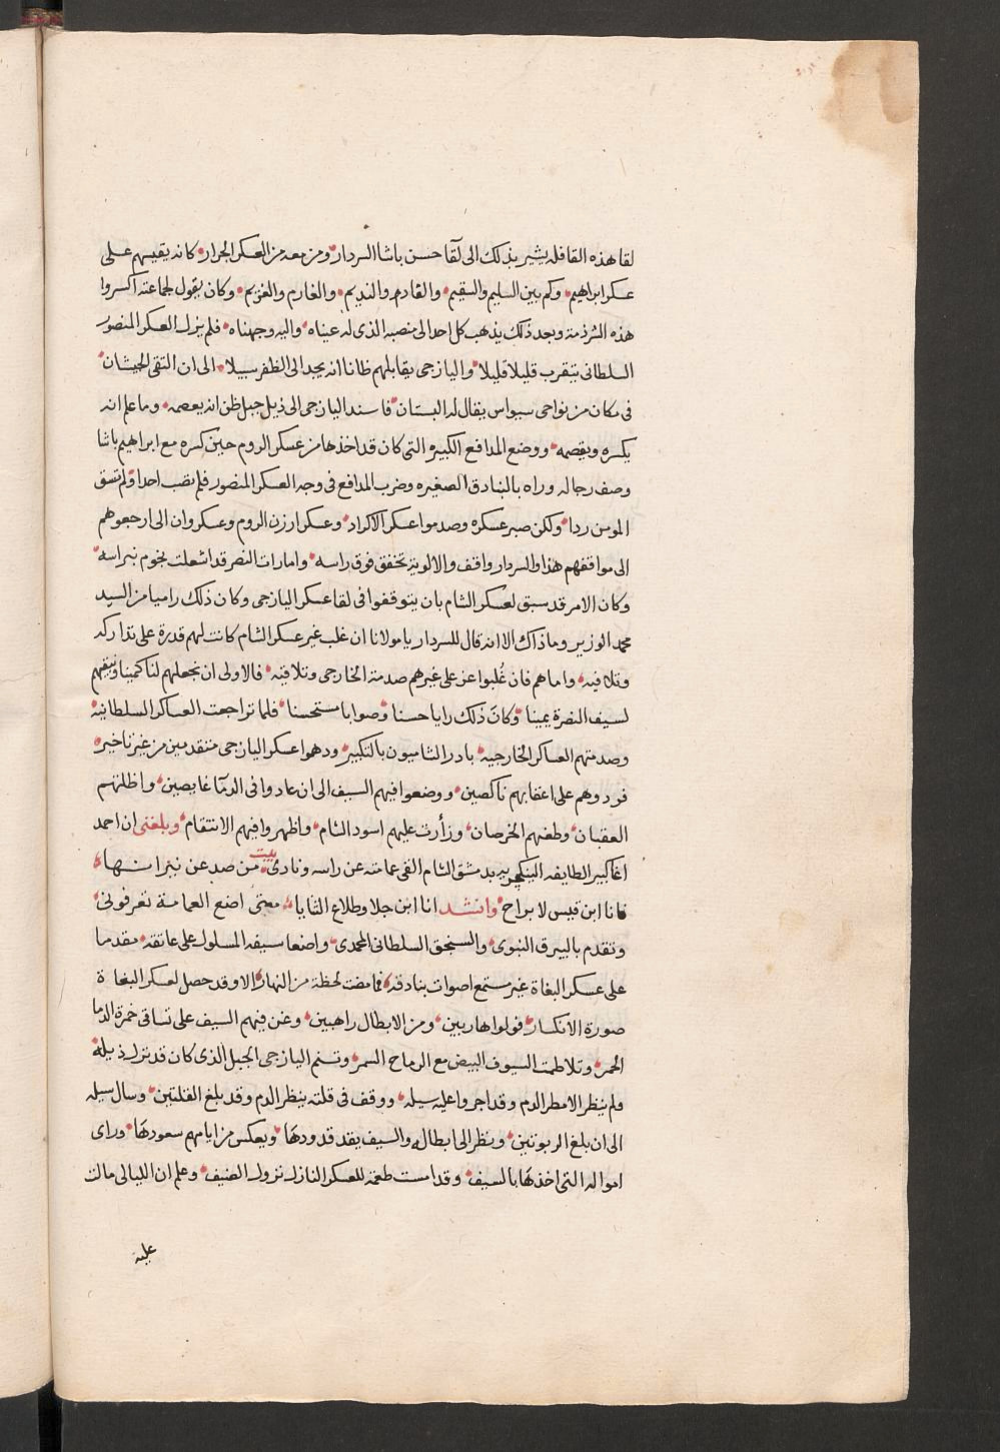 لقا هذه القافله يشير بذلك الى لقا حسن باشا السردار ومن معه من العسكر الجرار كانه يقيسهم على
عسكر ابراهيم وكم بين السليم والسقيم والقادم والنديم والغارم والغريم وكان يقول لجماعته اكسروا
هذه الشرذمة وبعد ذلك يذهب كل احد الى منصبه الذى له عيناه واليه وجهناه فلم يزل العسكر المنصور
السلطانى يتقرب قليلا قليلا واليازجى يقابلهم ظانا انه يجد الى الظفر سبيلا الى ان التقى الجيشان
فى مكان من نواحى سيواس يقال له البستان فاسند اليازجى الى ذيل جبل ظن انه يعصمه وما علم انه
يكسره ويقصمه ووضع المدافع الكبيره التى كان قد اخذها من عسكر الروم حين كسره مع ابراهيم باشا
وصف رجاله وراه بالبنادق الصغيره وضرب المدافع فى وجه العسكر المنصور فلم تصب احدا ولم تسق
الموس ردا ولكن صبر عسكره وصدموا عسكر الاكراد وعسكر ارزن الروم وعسكر وان الى ارجعوهم
الى مواقفهم هذا والسردار واقف والالوية تخفق فوق راسه وامارات النصر قد اشعلت نجوم نبراسه
وكان الامر قد سبق لعسكر الشام بان يتوقفوا فى لقا عسكر اليازجى وكان ذلك راميا من السيد
محمد الوزير وما ذاك الا انه قال للسردار يا مولانا ان غلب غير عسكر الشام كانت لهم قدرة على تداركه
وتلافيه واما هم فان غُلبوا عز على غيرهم صدمة الخارجى وتلافيه فالاولى ان نجعلهم لنا كمينا ونبقيهم
لسيف النصرة يمينا وكان ذلك رايا حسنا وصوابا مستحسنا فلما تراجعت العساكر السلطانية
وصدمتهم العساكر الخارجيه بادر الشاميون بالتكبير ودهموا عسكر اليازجى متقدمين من غير تاخير
فردوهم على اعقابهم ناكصين ووضعوا فيهم السيف الى ان عادوا فى الدمآ غايصين واظلتهم
العقبان وطعنهم الخرصان وزأرت عليهم اسود الشام واظهروا فيهم الانتقام وبلغنى ان احمد
اغا كبير الطايفه الينكجريه بدمشق الشام القى عمامته عن راسه ونادى بيت من صد عن نيرانها
فانا ابن قيس لا براح وانشد انا ابن جلا وطلاع الثنايا متى اضع العمامة تعرفونى
وتقدم بالبيرق النبوى والسنجق السلطانى المحمدى واضعا سيفه المسلول على عاتقه مقدما
على عسكر البغاة غير مستمع اصوات بنادقه فما مضت لحظة من النهار الا وقد حصل لعسكر البغاة
صورة الانكسار فولوا هاربين ومن الابطال راهبين وغنى فيهم السيف على تساقى خمرة الدما
الحمر وتلاطمت السيوف البيض مع الرماح السمر وتسنم اليازجى الجبل الذى كان قد نزل ذيله
ولم ينظر الا مطر الدم وقد اجروا عليه سيله ووقف فى قلته ينظر الدم وقد بلغ القلتين وسال سيله
الى ان بلغ الربوتين ونظر الى ابطاله والسيف يقد قدودهَا ويعكس من ايامهم سعودهَا وراى
امواله التى اخذهَا بالسيف وقد امست طعمة للعسكر النازل نزول الضيف وعلم ان الليالى مالت
عليه